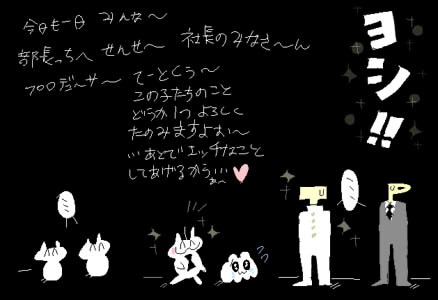 今日も一日 みんな～
部長っちへ せんせ～ 社長のみなさ～ん
プロデューサー てーとくぅ～
この子たちのこと
どうか1つ よろしく
たのみますよぉ～
…あとでエッチなこと
してあげるからぁ…
ヨシ!!